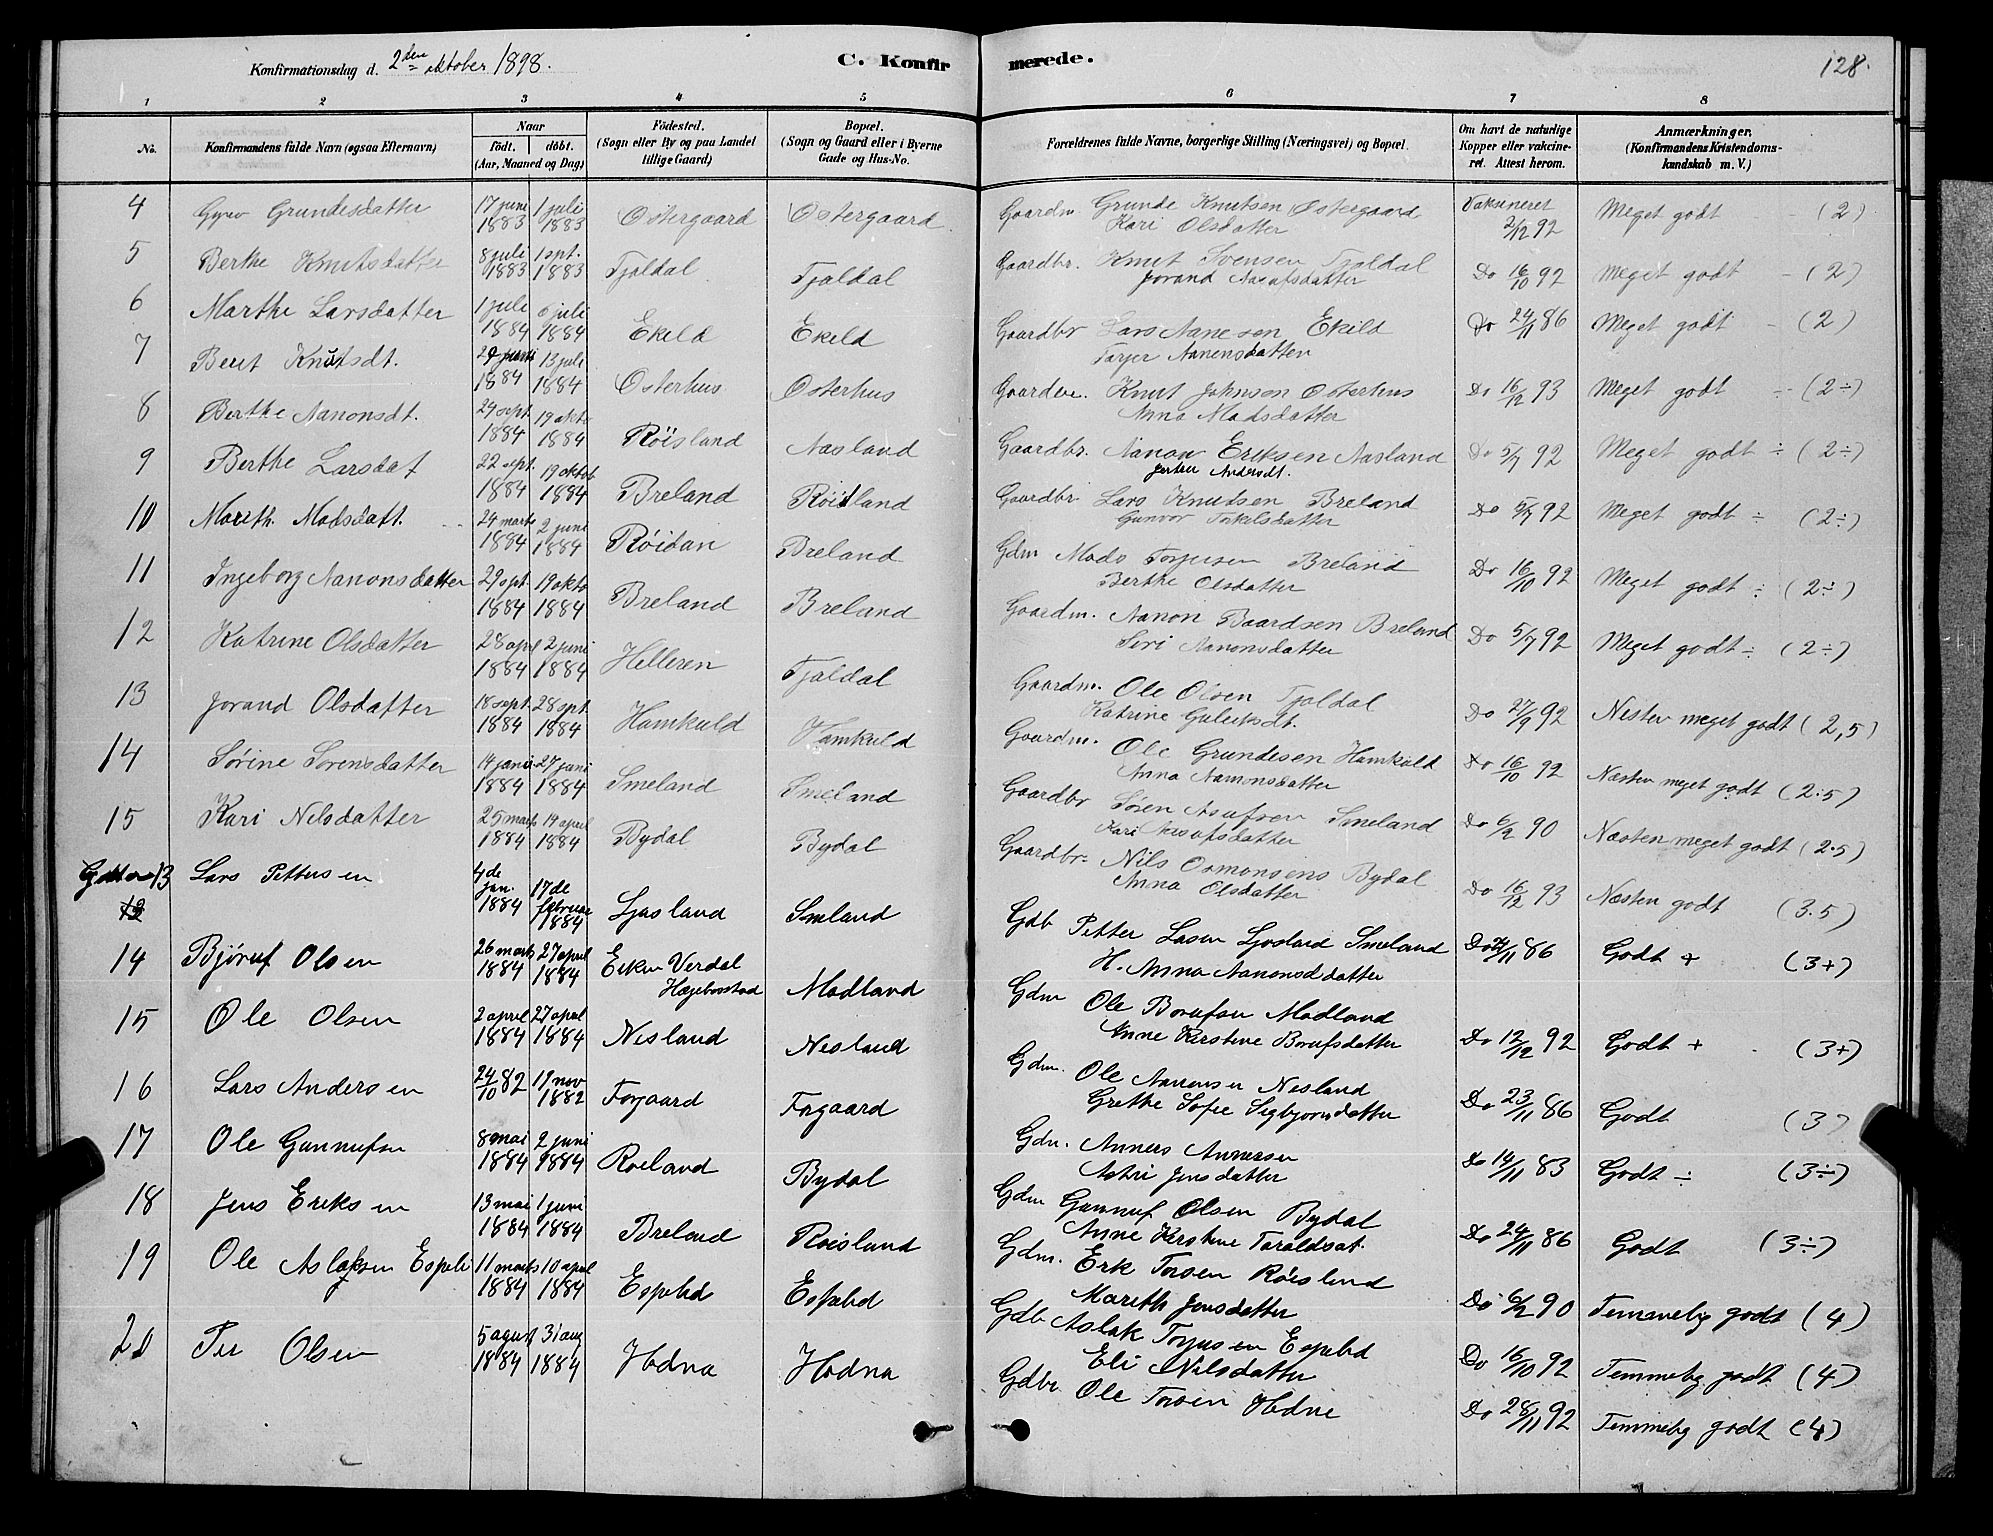 Konfirmationsdag d. 2den oktober 1898.
C. Konfirmerede.
128.
1 2 3 4 5 6 7 8
No.
Konfirmandens fulde Navn (ogsaa Efternavn)
Naar
födt. döbt.
(Aar, Maaned og Dag)
Födested.
(Sogn eller By og paa Landet
tillige Gaard)
Bopæl.
(Sogn og Gaard eller i Byerne
Gade og Hus-No.
Forældrenes fulde Navne, borgerlige Stilling (Næringsvei) og Bopæl.
Om havt de naturlige
Kopper eller vakcine-
ret. Attest herom.
Anmærkninger.
(Konfirmandens Kristendoms-
kundskab m. V.)
4 Gyro Grundesdatter 17 juni 1883 1 juli 1883 Østergaard Østergaard Gaardm. Grunde Knutsen Østergaard
Kari Olsdatter Vaksineret 2/12 92 Meget godt - (2)
5 Berthe Knutsdatter 8 juli 1883 1 spt. 1883 Tjaldal Tjaldal Gaardbr. Knut Svensen Tjaldal
Jorand Asulfsdatter Do 16/10 92 Meget godt - (2)
6 Marthe Larsdatter 1 juli 1884 6 juli 1884 Ekeld Ekeld Gaardbr Lars Aanesen Ekild
Tarjer Aanensdatter Do 24/11 86 Meget godt - (2)
7 Berit Knutsdt. 1884 13 juli 1884 Osterhus Osterhus Knut Johnsen Osterhus
Anna Madsdatter Do 16/12 93 Meget godt - (2÷)
8 Berthe Aanonsdt. 29 sept. 1884 19 okto 1884 Röisland Aasland Gaardbr. Aanon Eriksen Aasland
Andersdt. Do 5/7 92 Meget godt ÷ (2÷)
9 Berthe Larsdat 22 sept. 1884 19 oktob 1884 Breland Röisland Gaardbr. Lars Knudsen Breland
Gunvor Torkelsdatter Do 5/7 92 Meget godt ÷ (2÷)
10 Mareth. Madsdatt. 24 marts 1884 2 juni 1884 Breland Gdm Mads Torjusen Breland
Berthe Olsdatter Do 16/10 92 Meget godt ÷ (2÷)
11 Ingeborg Aanonsdatter 29 spt 1884 19 okto 1884 Breland Breland Gaardm. Aanon Baardsen Breland
Siri Aanonsdatter Do 5/7 92 Meget godt ÷ (2÷)
12 Katrine Olsdatter 28 apr 1884 2 juni 1884 Helleren Tjaldal Gaardm. Ole Olsen Tjaldal
Katrine Guleiksdt. Do 27/9 92 Nesten meget godt (2,5)
13 Jorand Olsdatter 18 sept. 1884 28 spt. 1884 Hamkuld Hamkuld Gaardm. Ole Grundesen Hamkuld
Anna Aanonsdatter Do 16/10 92 Næsten meget godt (2.5)
14 Sørine Sørensdatter 1884 27 juni 1884 Smeland Smeland Gaardbr Sören Asulfsen Smeland
Kari Asulfsdatter Do 6/2 90 Næsten meget godt (2.5)
15 Kari Nilsdatter 25 marts 1884 19 april 1884 Bydal Bydal Gaardbr. Nils Osmonsens Bydal
Anna Olsdatter Do 16/12 93 Næsten godt (3.5)
13 Lars Pettersen 4de jan. 1884 17de februar 1884 Ljosland Smeland Gdb Petter Lasen Ljosland Smeland
H. Anna Aanonsddatter Do 24/11 86 Godt + (3+)
14 Bjøruf Olsen 26 marts 1884 27 april 1884 Eiken Verdal
Hægebostad Modland Gdm Ole Borufsen Modland
Anne Kirstine Borufsdatter Do 12/12 92 Godt + (3+)
15 Ole Olsen 2 april 1884 27 april 1884 Nesland Nesland Gdm. Ole Aanensen Nesland
Grethe Sofie Sigbjørnsdatter Do 23/11 86 Godt (3)
16 Lars Andersen 24/10 82 19 nov 1882 Forgaard Forgaard Gdm. Anners Annersen
Astri Jensdatter Do 14/11 83 Godt ÷ (3÷)
17 Ole Gunnufsen 8 mai 1884 2 juni 1884 Roeland Bydal Gdm Gunnuf Olsen Bydal
Anne Kirstine Taraldsdt. Do 24/11 86 Godt (3÷)
18 Jens Eriksen 13 mai 1884 1 juni 1884 Breland Roisland Gdm. Erk Torsen Röisland
Mareth Jensdatter Do 6/2 90 Temmelig godt (4)
19 Ole Aslaksen Espeli 11 marts 1884 10 april 1884 Espelid Espelid Gdb Aslak Torjusen Espelid
Eli Nilsdatter Do 16/10 92 Temmelig godt (4)
20 Per Olsen 5 agust 1884 31 aug 1884 Hodna Hodna Gdbr Ole Torsen Hodne Do 28/11 92 Temmelig godt (4)